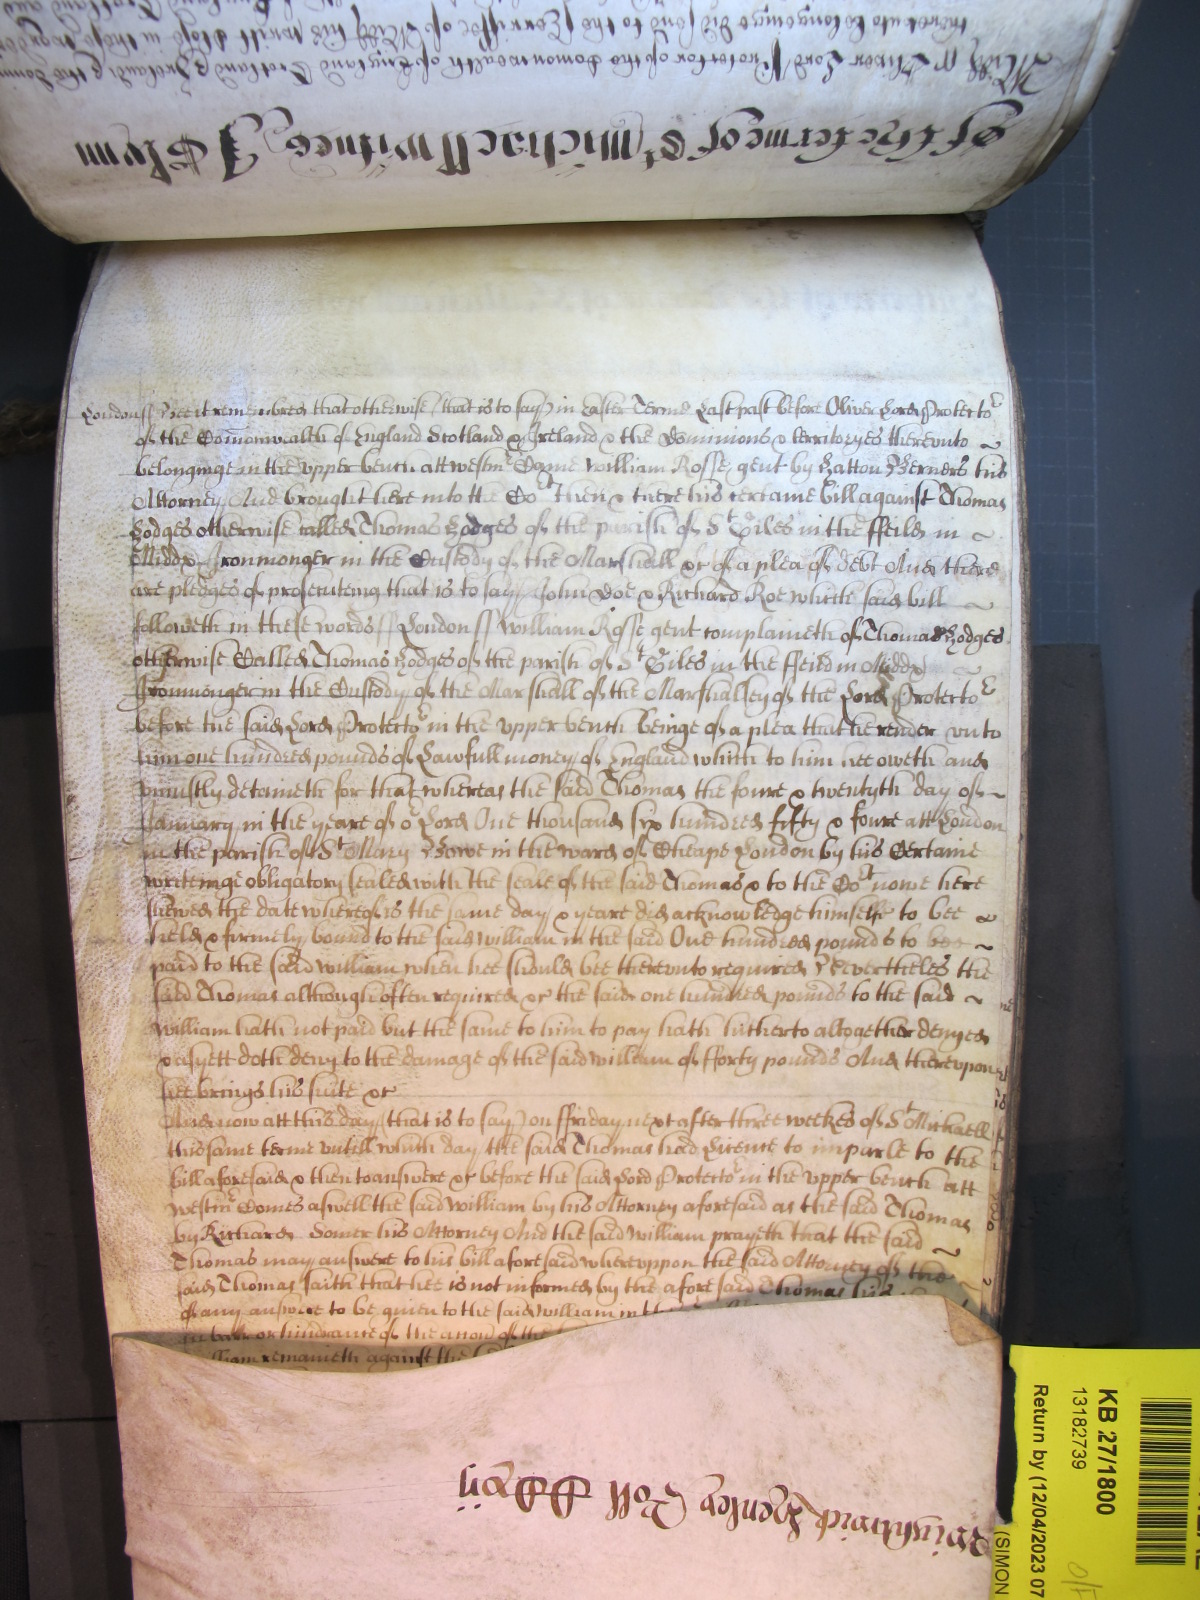 thereunto belonginge did send to the Sherriffe of Midd his writt close in these words
Midd ss Oliver Lord Protector of the Comonwealth of England Scotland & Ireland & the
Of the terme of St Michaell witnes J Glynn
London ss Bee it remembred that otherwise (that is to say) in Easter Terme Last past before Oliver Lord Protector
of the Comonwealth of England Scotland & Ireland & the dominions & territoryes thereunto
belonginge in the upper bench att Westmr Came William Rosse gent by Hatton Berners his
Attorney And brought here into the Cort then & there his certaine bill against Thomas
Hodges otherwise called Thomas Hodges of the parish of St Giles in the ffeilds in
Middx Ironmonger in the Custody of the Marshall &c of a plea of debt And there
are pledges of prosecuteing that is to say John Doe & Richard Roe which said bill
followeth in these words ss London ss William Rosse gent complaineth of Thomas Hodges
otherwise Called Thomas Hodges of the parish of St Giles in the ffeild in Middx
Ironmonger in the Custody of the Marshall of the Marshalsey of the Lord Protector
before the said Lord Protector in the upper bench beinge of a plea that he render unto
him one hundred pounds of Lawfull money of England which to him hee oweth and
uniustly detaineth for that whereas the said Thomas the foure & twentyth day of
January in the yeare of or Lord One thousand six hundred fifty & foure att London
in the parish of St Mary Bowe in the ward of Cheape London by his Certaine
writeinge obligatory sealed with the seale of the said Thomas & to the Cort nowe here
shewed the date whereof is the same day & yeare did acknowledge himselfe to bee
held & firmely bound to the said William in the said One hundred pounds to bee
paid to the said William when hee should bee thereunto required Neverthelesse the
said Thomas although often required &c the said one hundred pounds to the said
William hath not paid but the same to him to pay hath hitherto altogether denyed
& as yett doth deny to the damage of the said William of fforty pounds And thereupon
hee brings his suite &c
And now att this day (that is to say) on ffriday next after three weekes of St Michaell
this same terme untill which day the said Thomas had Licence to imparle to the
bill aforesaid & then to answere &c before the said Lord Protector in the upper bench att
Westmr Comes aswell the said William by his Attorney aforesaid as the said Thomas
by Richard Somer his Attorney And the said William prayeth that the said
Thomas may answere to his bill aforesaid whereuppon the said Attorney of the
said Thomas saith that hee is not informed by the aforesaid Thomas his
of any answere to be given to the said William in the
in barr or hindrance of the accon of the
William remaineth against the
Henley Roll
KB 27/1800
13182739
Return by (12/04/2023 07
(SIMON